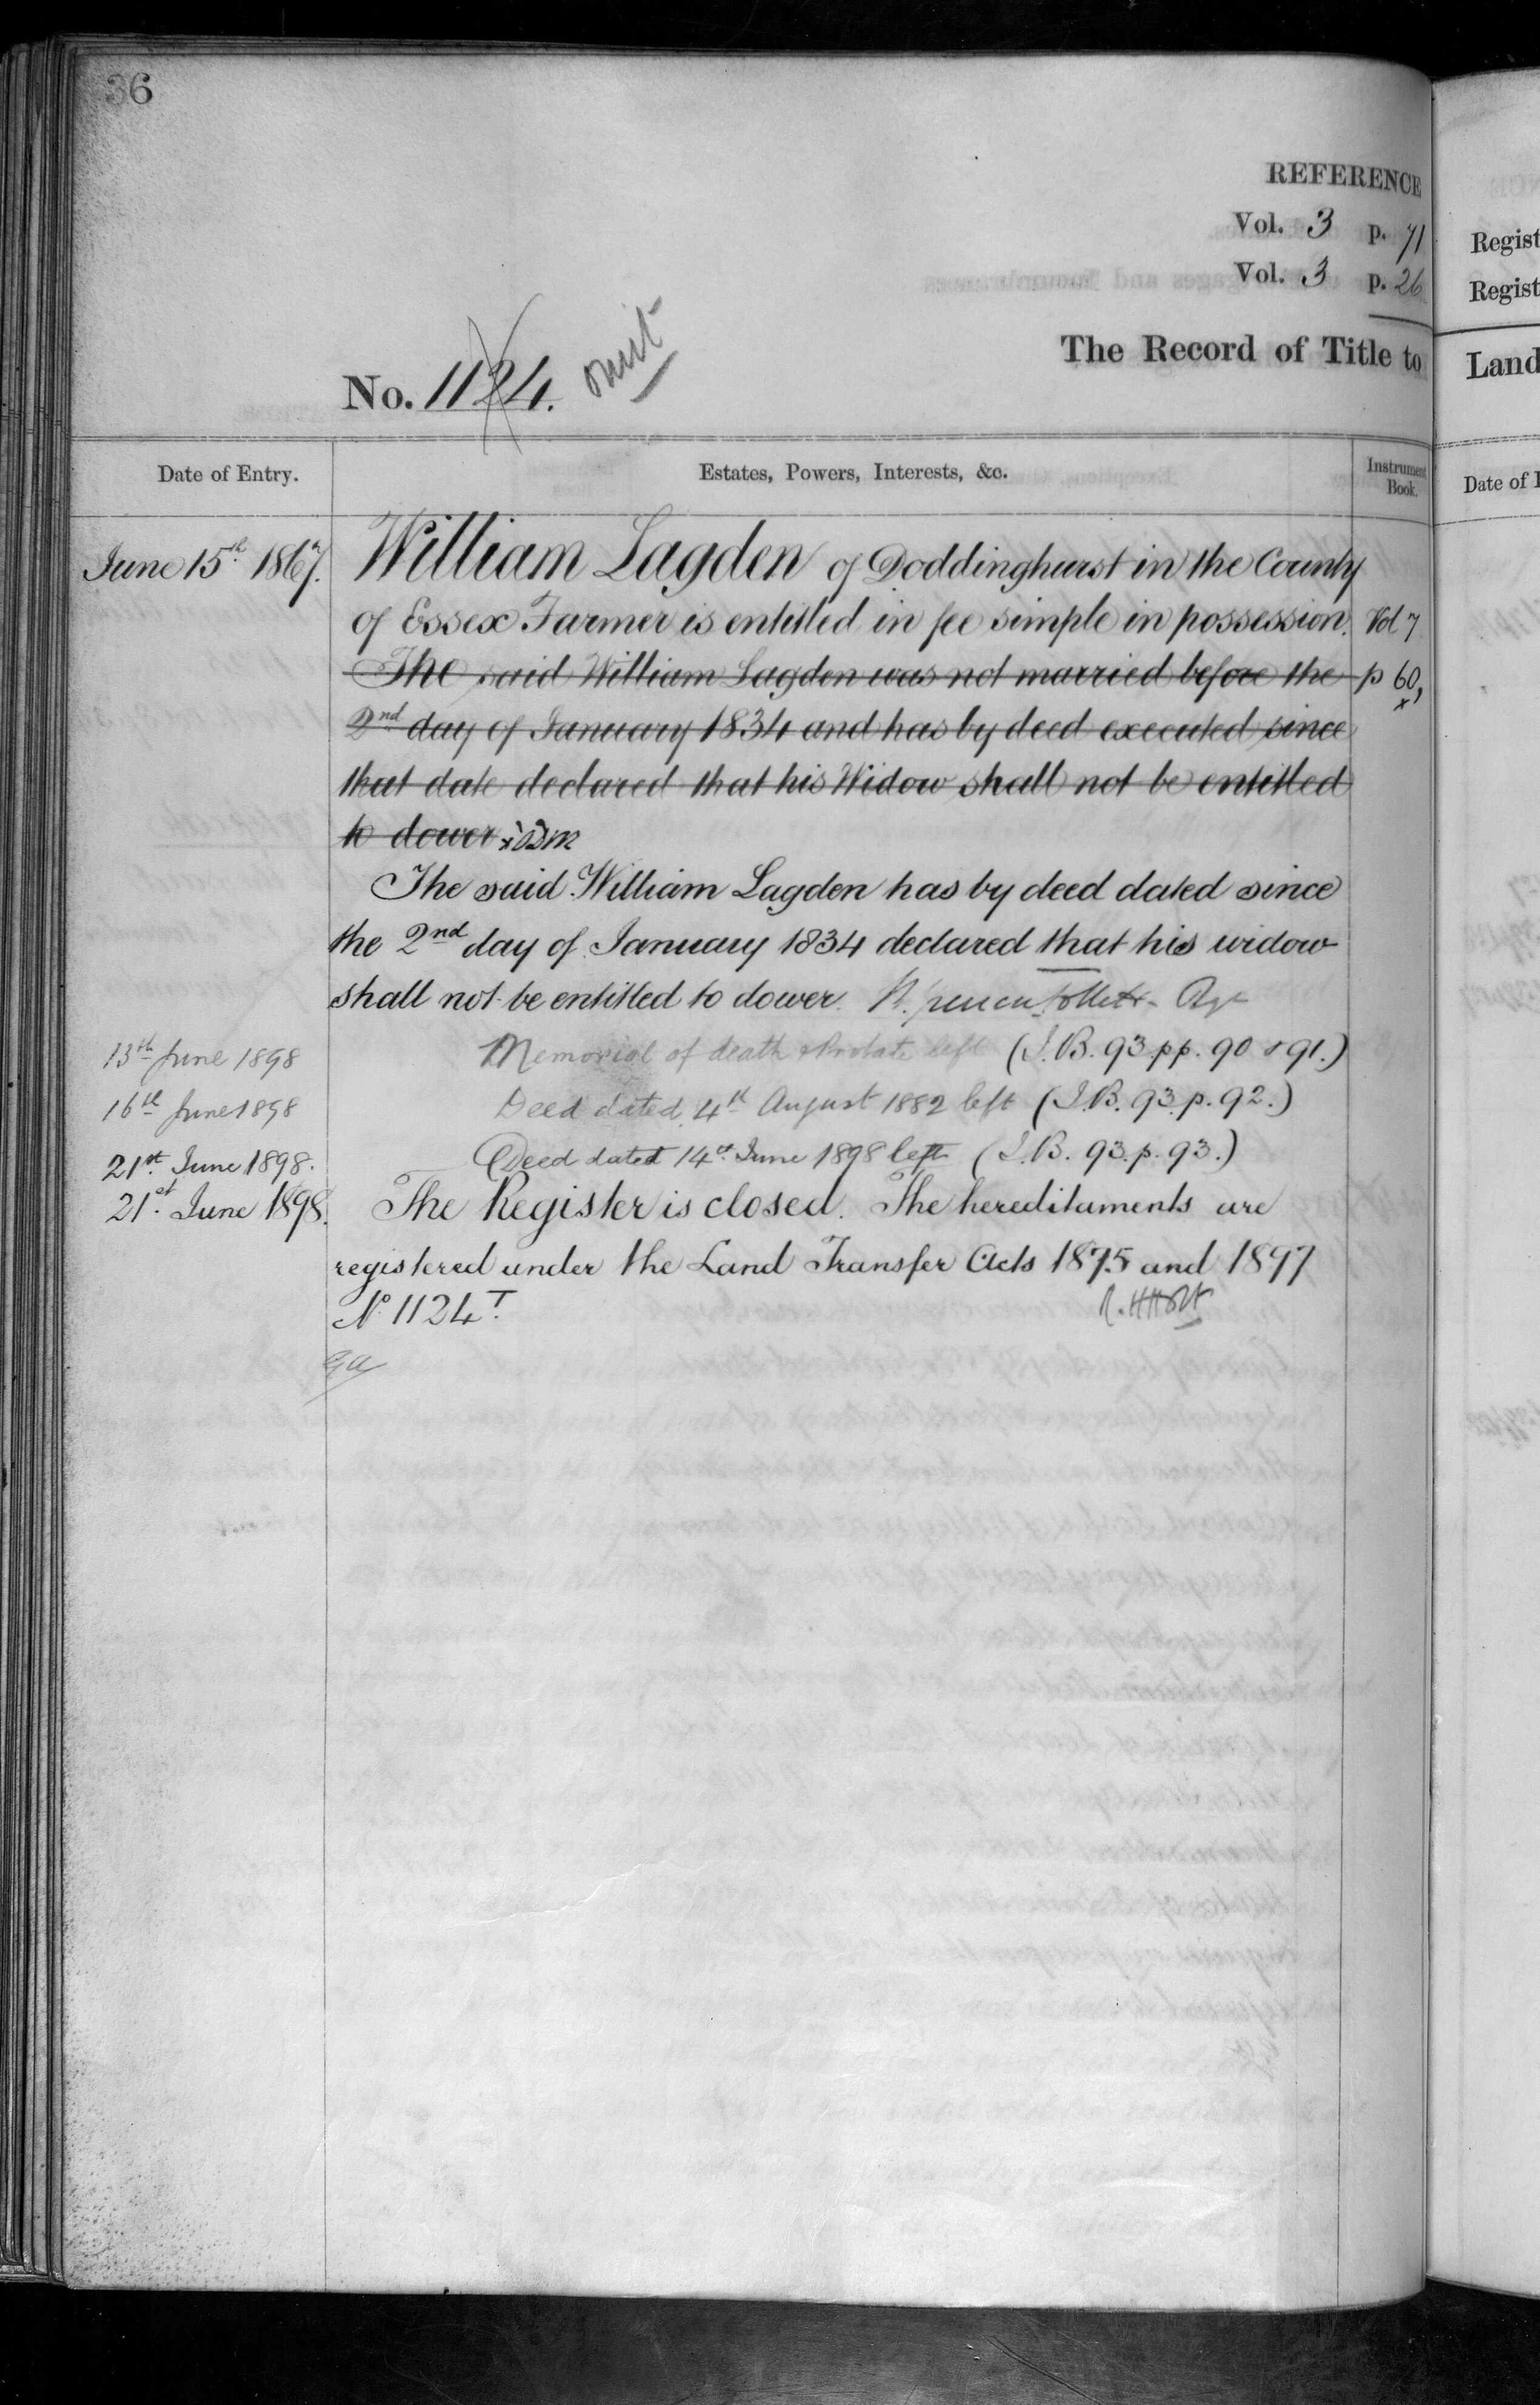 36
REFERENCE
Vol. 3 p. 71
Vol. 3 p. 26
The Record of Title to
No. 1124. omit
Date of Entry.
Estates, Powers, Interests, &c.
Instrument Book.
June 15th 1867.
William Lagden of Doddinghurst in the County
of Essex Farmer is entitled in fee simple in possession. Vol 7
The said William Lagden was not married before the p 60,
2nd day of January 1834 and has by deed executed since
that date declared that his Widow shall not be entitled
to dower
The said William Lagden has by deed dated since
the 2nd day of January 1834 declared that his widow
shall not be entitled to dower.
13th June 1898 Memorial of death & Probate left (I.B. 93 pp. 90 & 91.)
16th June 1898 Deed dated 4th August 1882 left (I.B. 93. p. 92.)
21st June 1898. Deed dated 14th June 1898 left (I.B. 93. p. 93.)
21st June 1898. The Register is closed. The hereditaments are
registered under the Land Transfer Acts 1875 and 1897
No 1124T.
Regist
Regist
Land
Date of